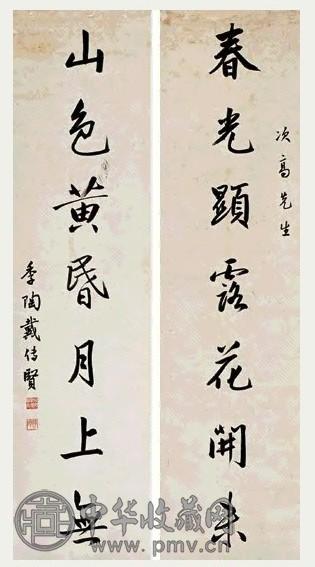 次高先生
春光顯露花開未
山色黃昏月上無
季陶戴传賢
中华收藏网
www.pmv.cn